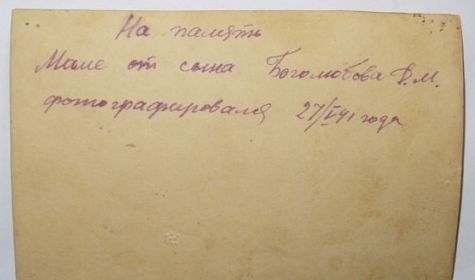 На память
Маме от сына Боголюбова Ф.М.
фотографировался 27/VI 41 года